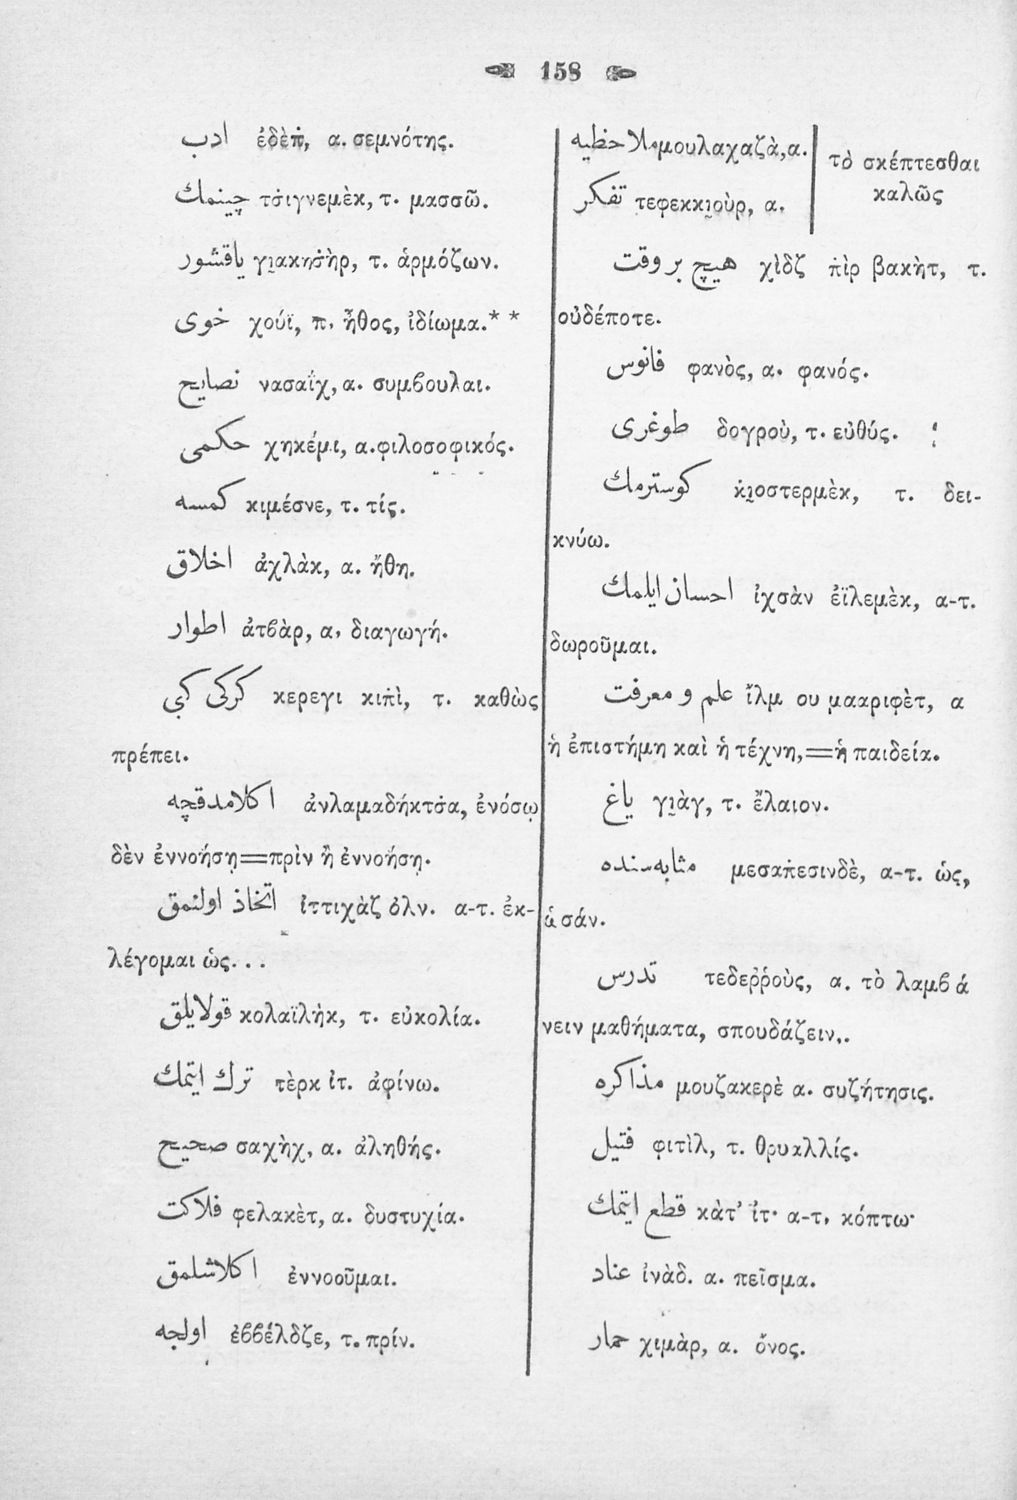 158
ادب ἐδὲπ̇, α. σεμνότης.
چينمك τσ̇ιγνεμὲκ, τ. μασσῶ.
ياقشور γι̯ακησ̇ὴρ, τ. ἁρμόζων.
خوى χούϊ, π. ἦθος, ἰδίωμα.* *
نصايح νασαΐχ, α. συμβουλαι.
حكمى χηκέμι, α. φιλοσοφικός.
كمسه κιμέσνε, τ. τίς.
اخلاق ἀχλὰκ, α. ἤθη.
اطوار ἀτβὰρ, α, διαγωγή.
كركى كبى κερεγι κιπ̇ὶ, τ. καθὼς
πρέπει.
اكلامدقچه ἀνλαμαδήκτσ̇α, ἐνόσῳ
δὲν ἐννοήσῃ=πρὶν ἢ ἐννοήσῃ.
اتخاذ اولنمق ἰττιχὰζ ὀλν. α-τ. ἐκ-
λέγομαι ὡς...
قولايلق κολαϊλὴκ, τ. εὐκολία.
ترك ايتمك τὲρκ ἰτ. ἀφίνω.
صحيح σαχὴχ, α. ἀληθής.
فلاكت φελακὲτ, α. δυστυχία.
اكلاشلمق ἐννοοῦμαι.
اولجه ἐββέλδζε, τ. πρίν.
ملاحظيه μουλαχαζὰ, α.
تفكر τεφεκκι̯οὺρ, α.
τὸ σκέπτεσθαι
καλῶς
هيچ بر وقت χὶδζ π̇ὶρ βακὴτ, τ.
οὐδέποτε.
فانوس φανὸς, α. φανός.
طوغرى δογροὺ, τ. εὐθύς.
كوسترمك κ̇ι̯οστερμὲκ, τ. δει-
κνύω.
احسان ايلمك ἰχσὰν ἐϊλεμὲκ, α-τ.
δωροῦμαι.
علم و معرفت ἲλμ ου μααριφὲτ, α
ἡ ἐπιστήμη καὶ ἡ τέχνη,=ἡ παιδεία.
ياغ γι̯ὰγ, τ. ἔλαιον.
مثابه‌سنده μεσαπ̇εσινδὲ, α-τ. ὡς,
ὡσάν.
تدرس τεδεῤῥοὺς, α. τὸ λαμβά
νειν μαθήματα, σπουδάζειν..
مذاكره μουζακερὲ α. συζήτησις.
فتيل φιτὶλ, τ. θρυαλλίς.
قطع ايتمك κὰτ’ ἲτ· α-τ. κόπτω·
عناد ἰνὰδ. α. πεῖσμα.
حمار χιμὰρ, α. ὄνος.